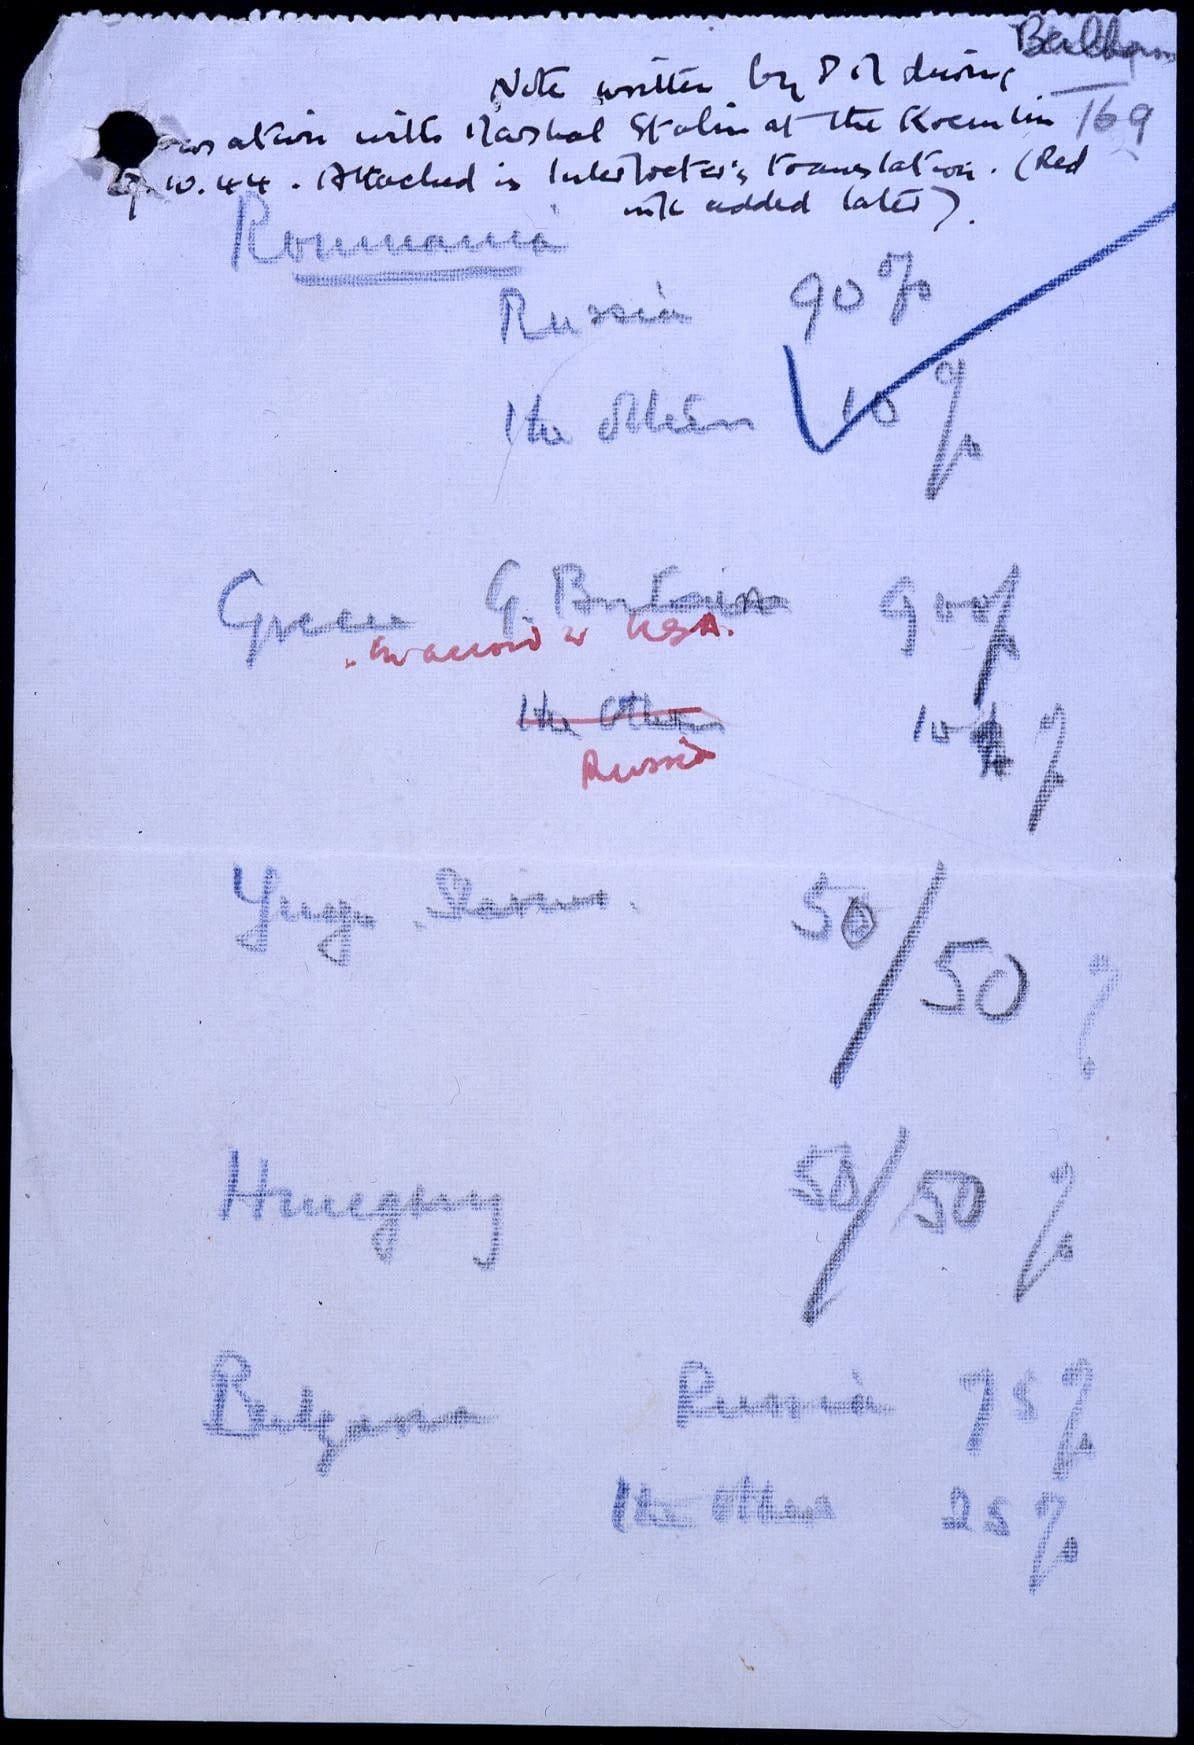 Note written by P M during
with Marshal Stalin at the Kremlin 169
9.10.44. Attached is Interpreter's translation. (Red
ink added later).
Roumania
Russia 90%
The others 10%
Greece G. Britain 90%
in accord w USA.
The others 10%
Russia
Yugo Slavia. 50/50 %
Hungary 50/50 %
Bulgaria Russia 75%
The others 25%